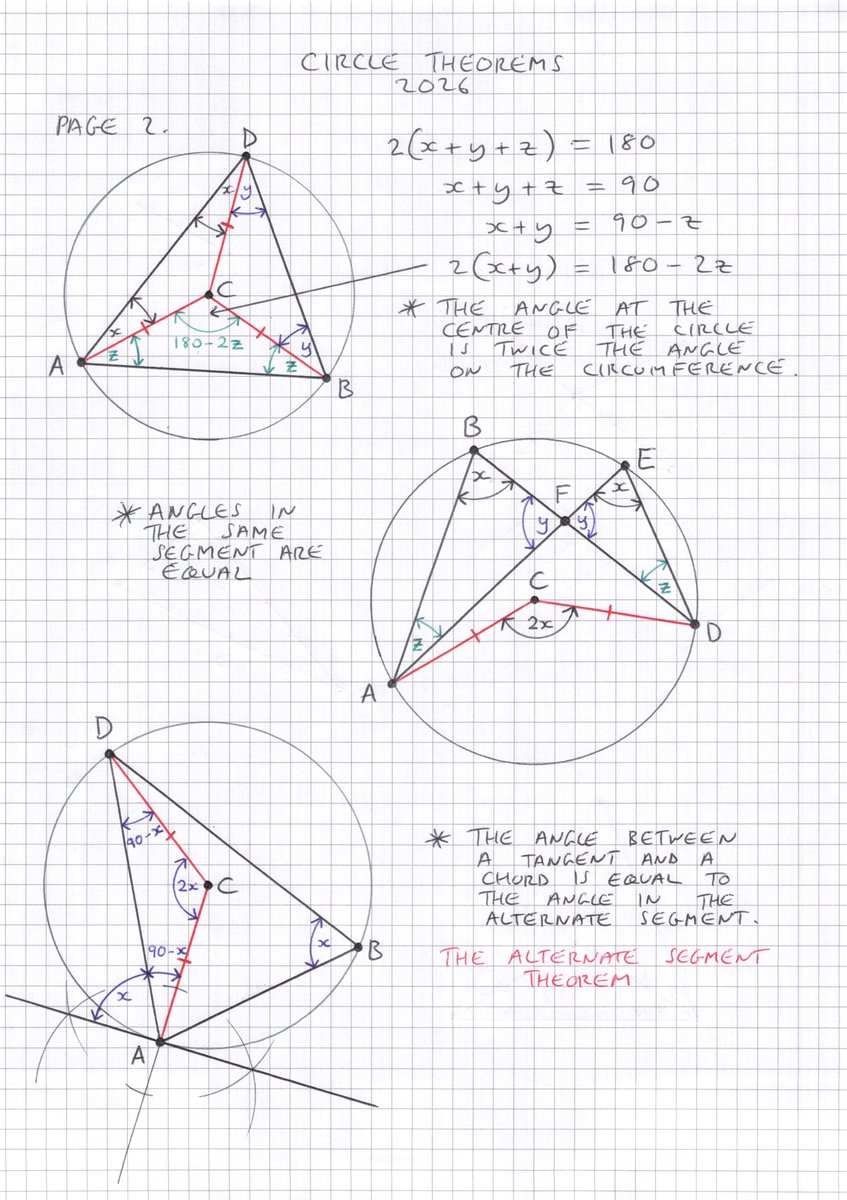 CIRCLE THEOREMS
2026
PAGE 2.
2(x+y+z) = 180
x+y+z = 90
x+y = 90-z
2(x+y) = 180-2z
* THE ANGLE AT THE
CENTRE OF THE CIRCLE
IS TWICE THE ANGLE
ON THE CIRCUMFERENCE.
D
x
y
C
x
z
180-2z
z
y
A
B
* ANGLES IN
THE SAME
SEGMENT ARE
EQUAL
B
E
x
F
x
y
y
C
z
2x
z
D
A
D
90-x
2x
C
90-x
x
B
x
A
* THE ANGLE BETWEEN
A TANGENT AND A
CHORD IS EQUAL TO
THE ANGLE IN THE
ALTERNATE SEGMENT.
THE ALTERNATE SEGMENT
THEOREM